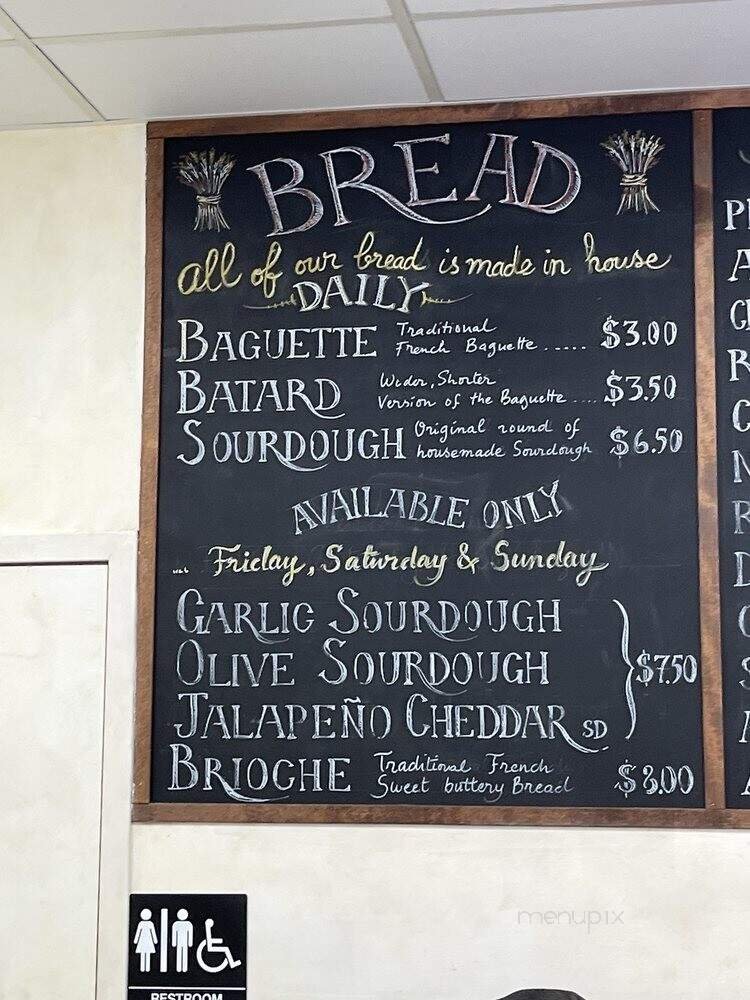 BREAD
all of our bread is made in house
DAILY
BAGUETTE Traditional French Baguette ..... $3.00
BATARD Wider, Shorter Version of the Baguette .... $3.50
SOURDOUGH Original round of housemade Sourdough $6.50
AVAILABLE ONLY
Friday, Saturday & Sunday
GARLIC SOURDOUGH
OLIVE SOURDOUGH $7.50
JALAPEÑO CHEDDAR SD
BRIOCHE Traditional French Sweet buttery Bread
RESTROOM
menupix